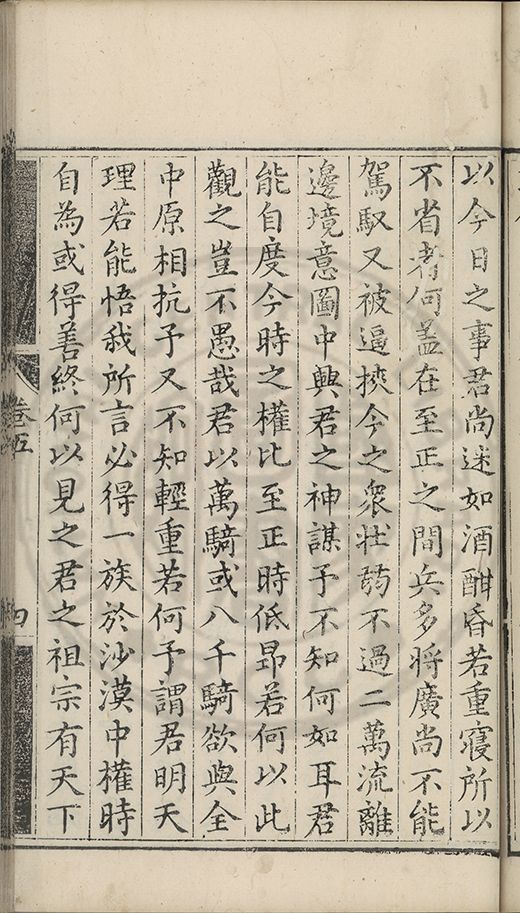 以今日之事君尚迷如酒酣昏若重寢所以
不省者何蓋在至正之間兵多將廣尚不能
駕馭又被逼挾今之衆壯弱不過二萬流離
邊境意圖中興君之神謀予不知何如耳君
能自度今時之權比至正時低昂若何以此
觀之豈不愚哉君以萬騎或八千騎欲與全
中原相抗予又不知輕重若何予謂君明天
理若能悟我所言必得一族於沙漠中權時
自為或得善終何以見之君之祖宗有天下
卷五
四